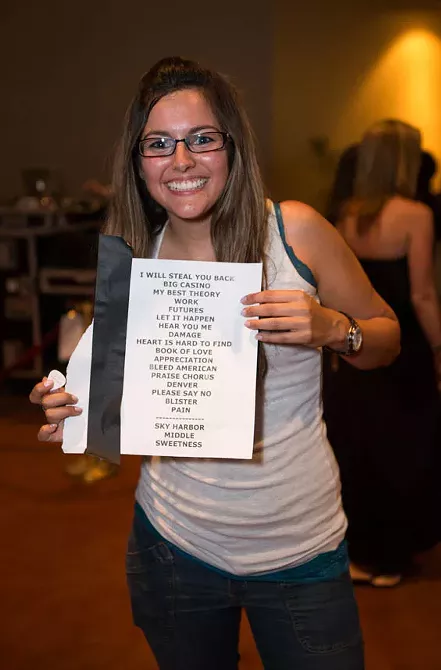 I WILL STEAL YOU BACK
BIG CASINO
MY BEST THEORY
WORK
FUTURES
LET IT HAPPEN
HEAR YOU ME
DAMAGE
HEART IS HARD TO FIND
BOOK OF LOVE
APPRECIATION
BLEED AMERICAN
PRAISE CHORUS
DENVER
PLEASE SAY NO
BLISTER
PAIN
------------
SKY HARBOR
MIDDLE
SWEETNESS